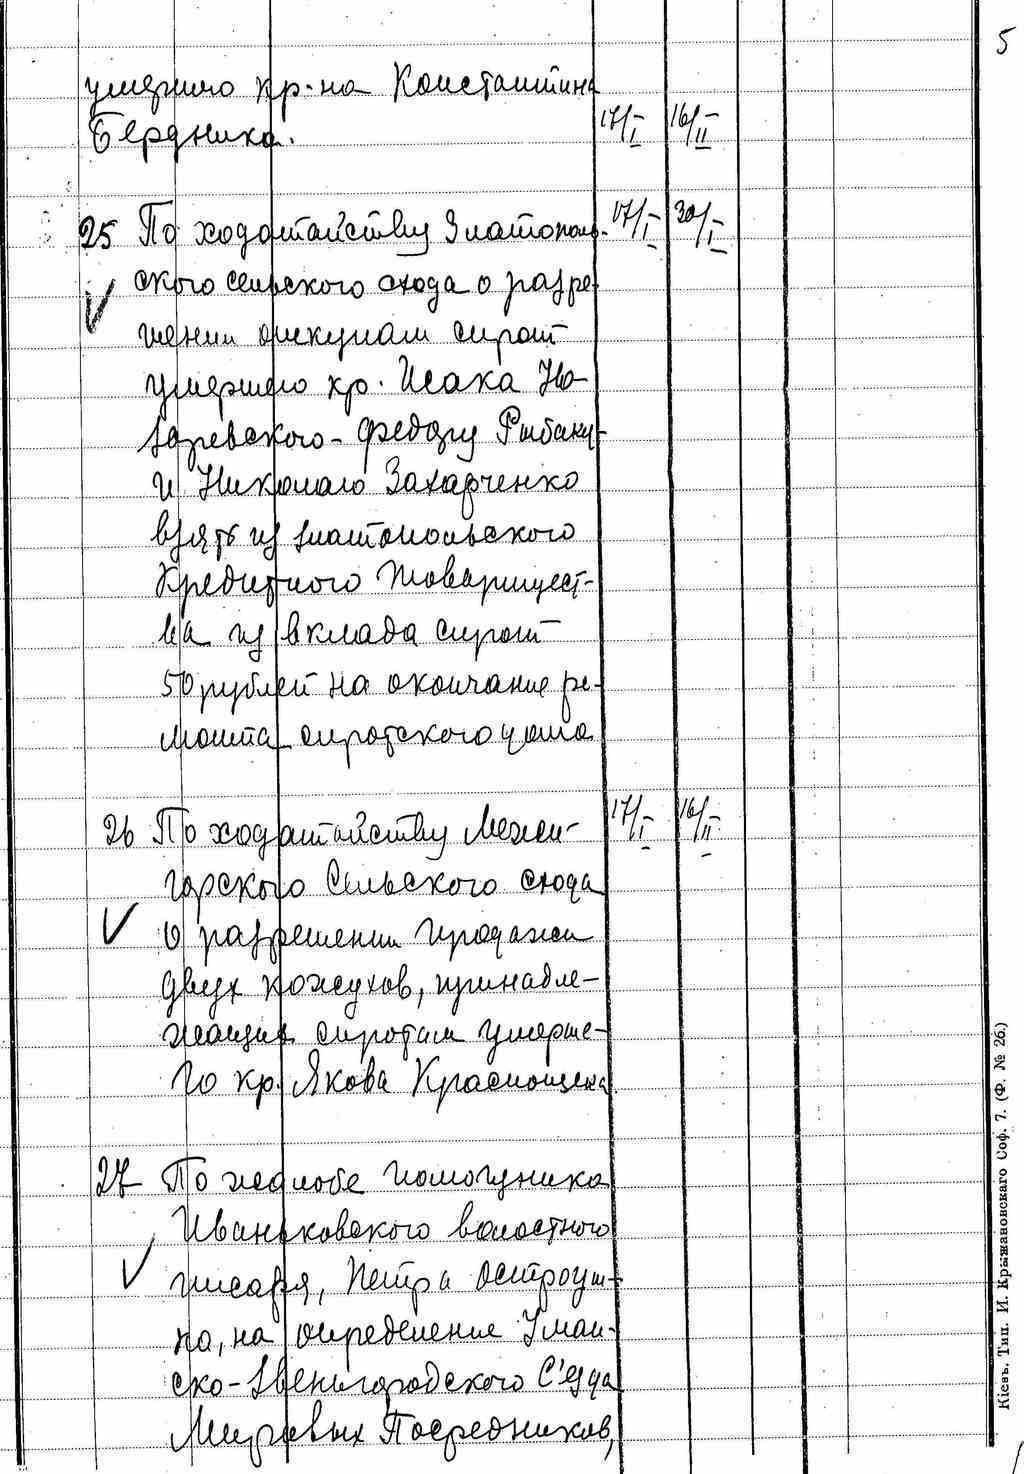 5
умершого кр-на Константина
Бердника. 17/I 16/II
25 По ходатайству Златополь- 17/I 30/I
ского сельского схода о разре
шении опекунам сирот
умершего кр. Исака На-
заревского - Федору Рыбаку
и Николаю Захарченко
взять из златопольского
Кредитного товарищест-
ва из вклада сирот
50 рублей на окончание ре-
монта сиротского дома
26 По ходатайству Межи- 17/I 16/II
горского Сельского схода
о разрешении продажи
двух кожухов, принадле-
жащих сиротам умерше-
го кр. Якова Краснощека
27 По жалобе помощника
Иваньковского волостного
писаря, Петра Остроуш-
ка, на определение Уман-
ско-Звенигородского С'езда
Мировых Посредников,
Кіевъ. Тип. И. Крыжановскаго Соф. 7. (Ф. № 26.)